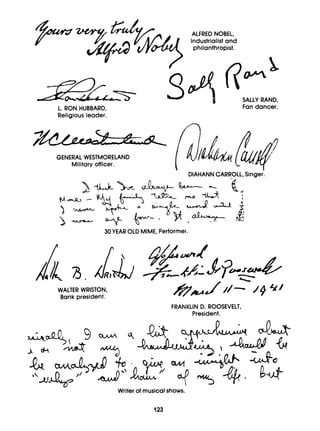 Yours very truly
Alfred Nobel
ALFRED NOBEL,
Industrialist and
philanthropist.
L. RON HUBBARD,
Religious leader.
Sally Rand
SALLY RAND,
Fan dancer.
GENERAL WESTMORELAND
Military officer.
Diahann Carroll
DIAHANN CARROLL, Singer.
I think I've always been a
Mime - My family tells me that
I never spoke a single word until
I was age four. It always
30 YEAR OLD MIME, Performer.
Walter B. Wriston
WALTER WRISTON,
Bank president.
Approved
Franklin D Roosevelt
March 11 - 1941
FRANKLIN D. ROOSEVELT,
President.
I am a bit apprehensive about
my handwriting, should
be analyzed to give an insight into
"whys" and "hows" of my life. but
Writer of musical shows.
123